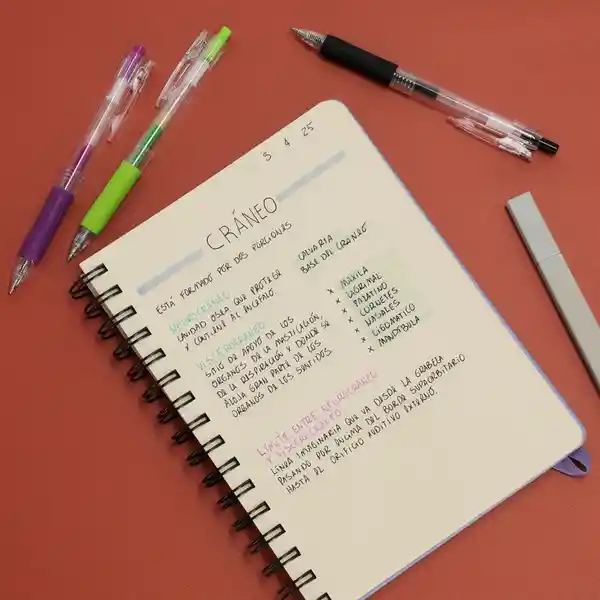 3 4 25
CRÁNEO
ESTÁ FORMADO POR DOS PORCIONES
NEUROCRÁNEO
CAVIDAD OSEA QUE PROTEGE
Y CONTIENE AL ENCEFALO.
CALVARIA
BASE DEL CRANEO
VISCEROCRÁNEO
SITIO DE APOYO DE LOS
ORGANOS DE LA MASTICACIÓN,
DE LA RESPIRACIÓN Y DONDE SE
ALOJA GRAN PARTE DE LOS
ORGANOS DE LOS SENTIDOS.
x MAXILA
x LAGRIMAL
x PALATINO
x CORNETES
x NASALES
x CIGOMATICO
x MANDIBULA
LÍMITE ENTRE NEUROCRANEO
Y VISCEROCRÁNEO
LÍNEA IMAGINARIA QUE VA DESDE LA GLABELA
PASANDO POR ENCIMA DEL BORDE SUPRAORBITARIO
HASTA EL ORIFICIO AUDITIVO EXTERNO.